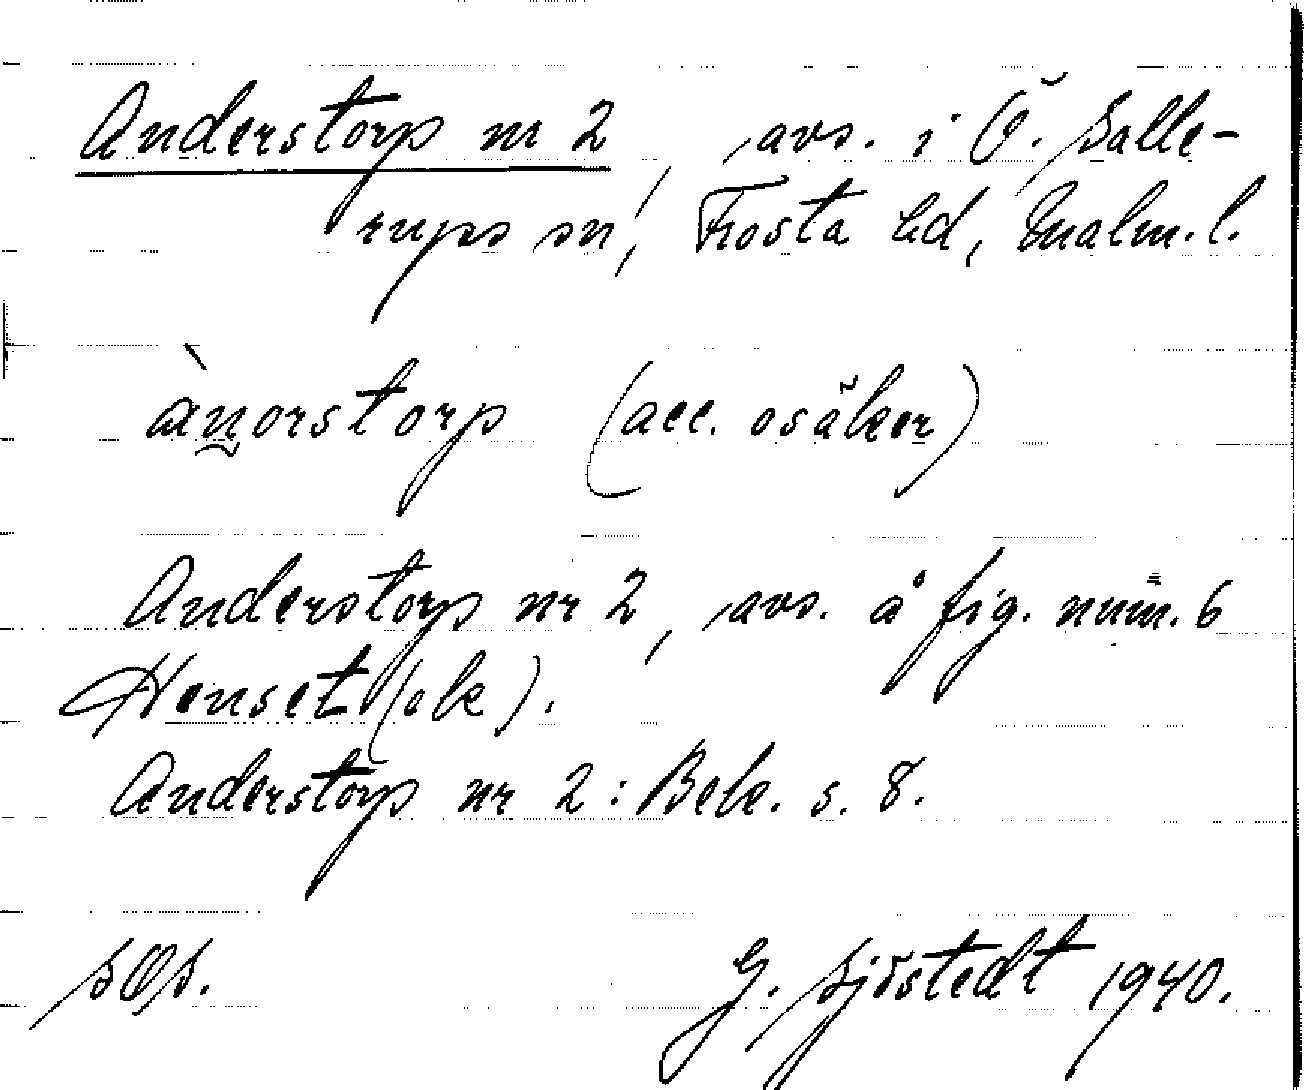 Anderstorp nr 2, avs. i Ö. Salle-
rups sn, Frosta hd, Malm. l.
ànorstorp (acc. osäker)
Anderstorp nr 2, avs. å fig. num. 6
Henset (ek).
Anderstorp nr 2: Bek. s. 8.
SOS. G. Sjöstedt 1940.